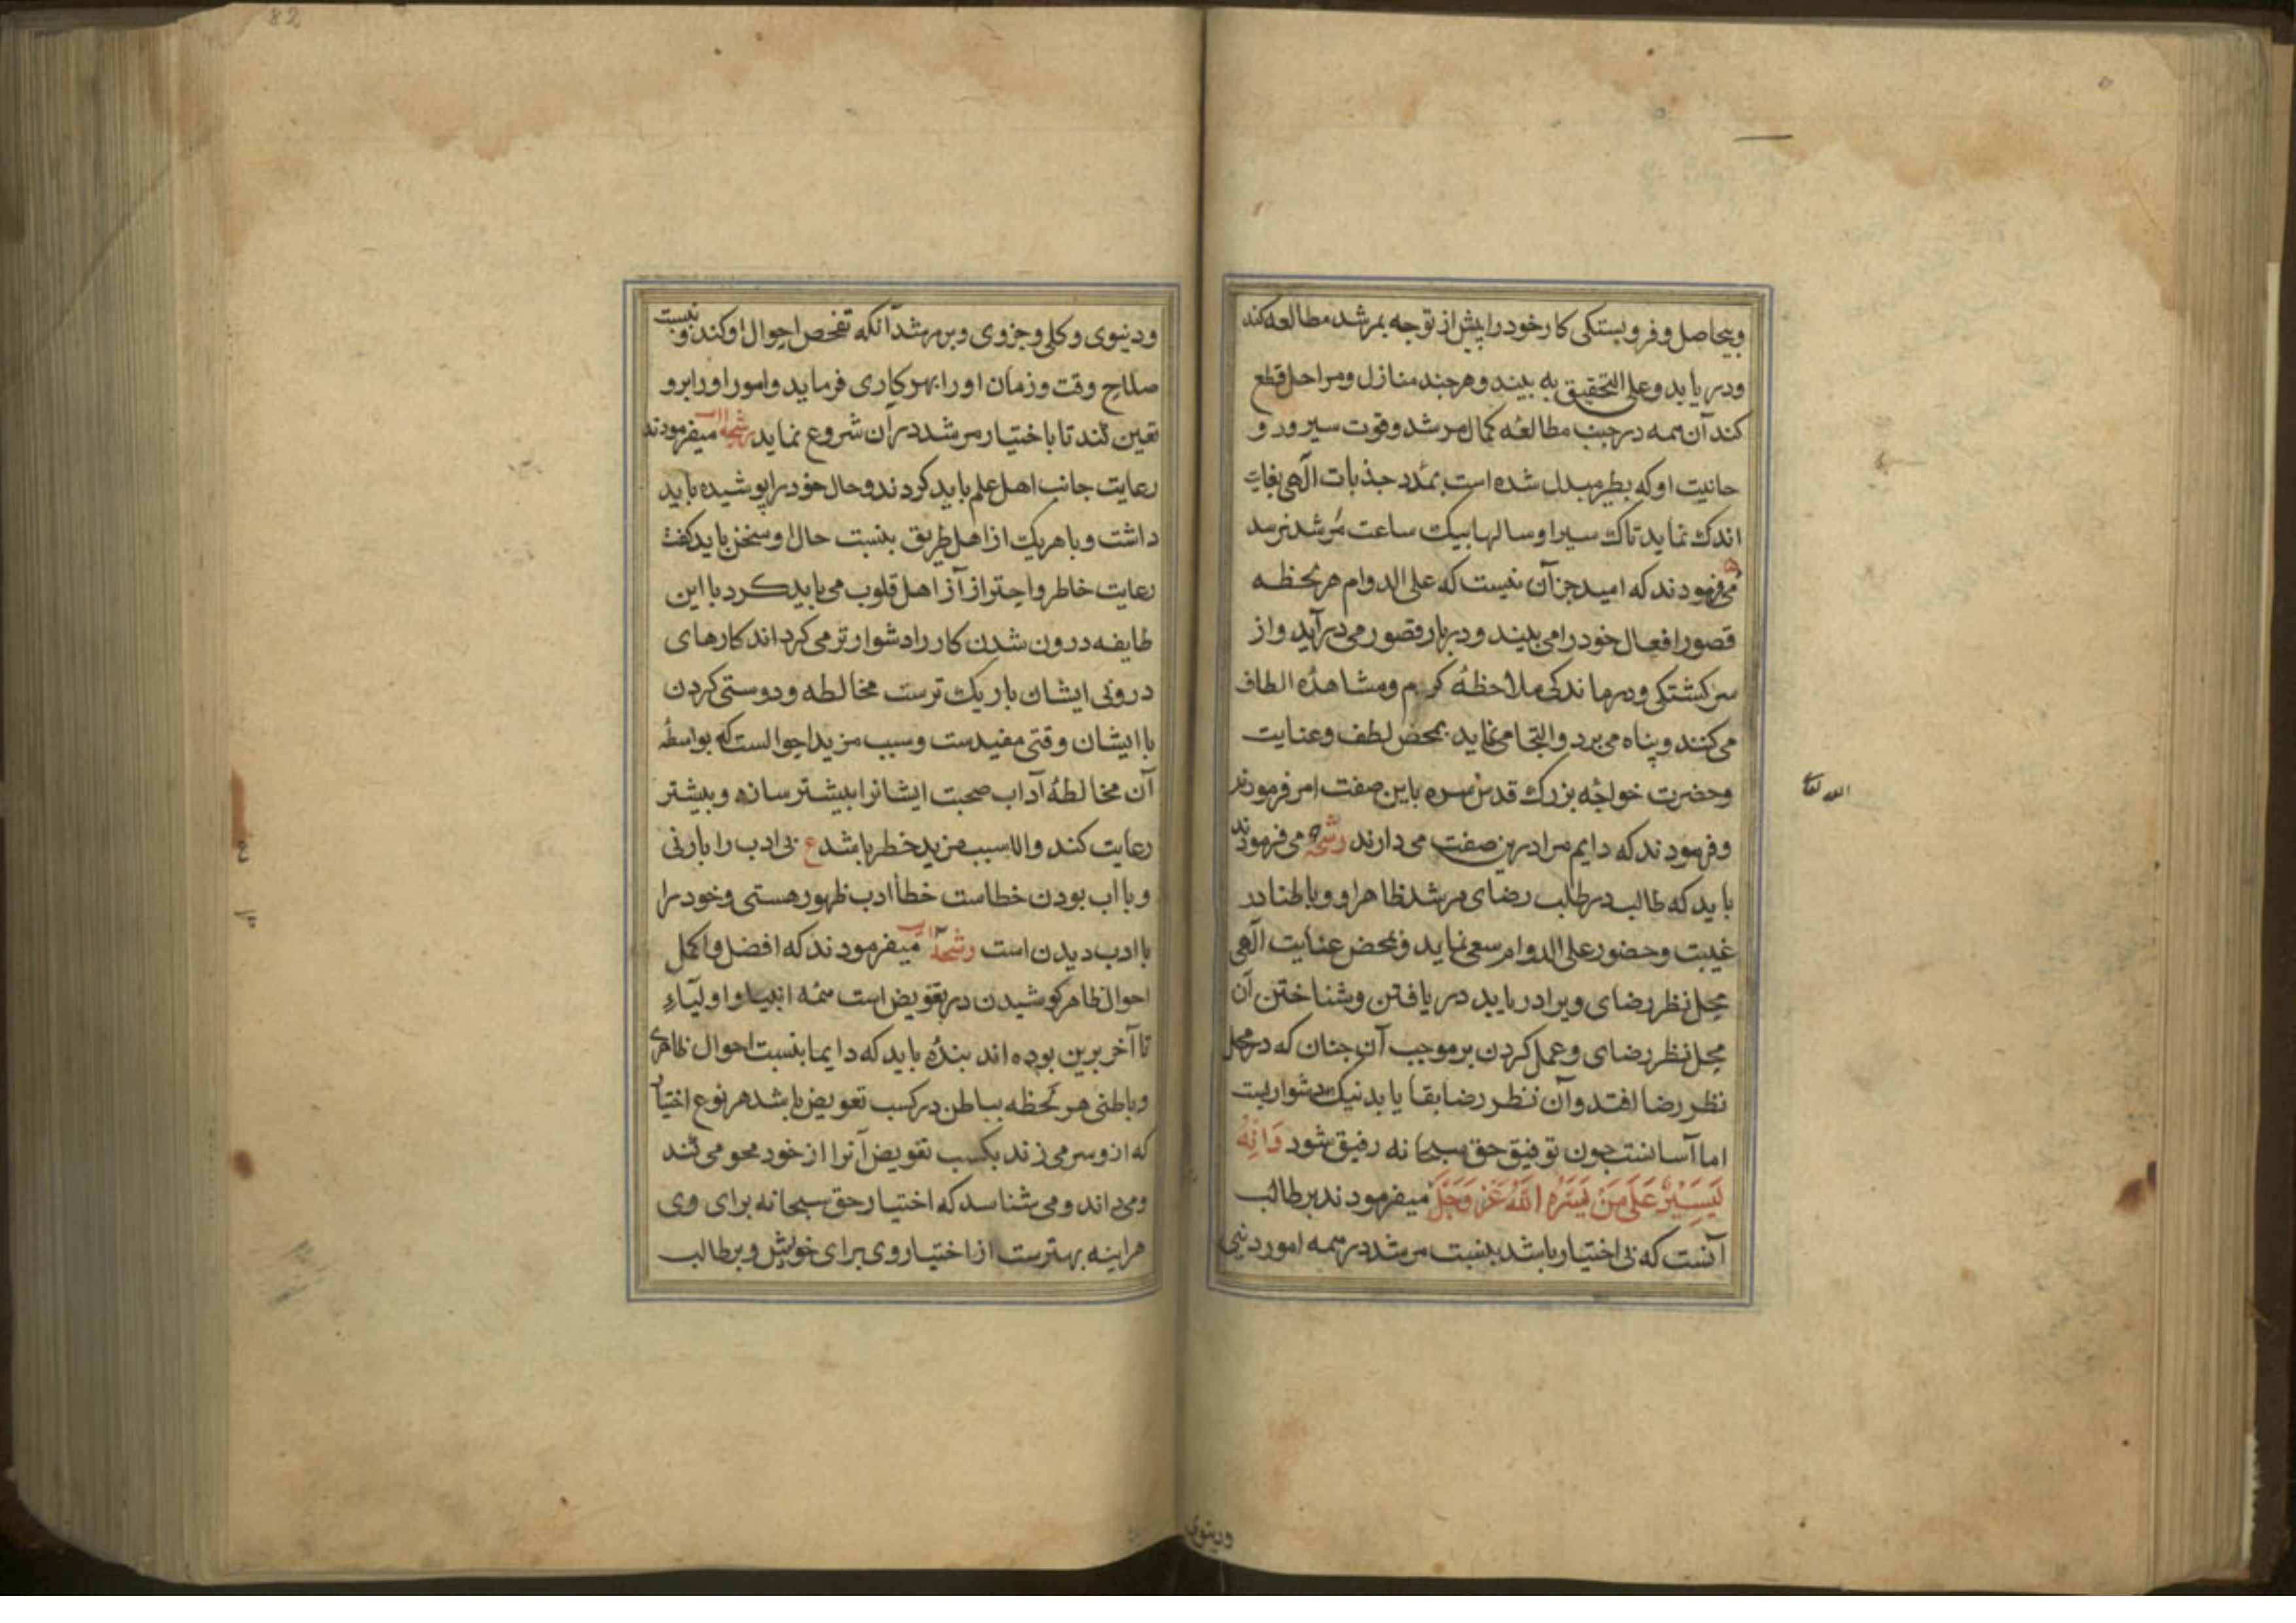 وبیحاصل و فروبستکی کار خود را پیش از توجه بمرشد مطالعه کند
ودر یابد وعلی التحقیق به بیند و هر چند منازل ومراحل قطع
کند آن همه در جنب مطالعهٔ کمال مرشد وقوت سیر ورو
حانیت او که بطیر مبدل شده است بمدد جذبات آلهی بغایت
اندک نماید تاک سیر او سالها بیک ساعت مرشد نرسد
می فرمودند که امید جز آن نیست که علی الدوام هر لحظه
قصور افعال خود را می بیند و دربار قصور می درآید و از
سرکشتکی و درماندکی ملاحظهٔ کرم ومشاهدهٔ الطاف
می کنند و پناه می برد والتجا می نماید بمحض لطف وعنایت
وحضرت خواجه بزرک قدس سره باین صفت امر فرمودند
وفرمودند که دایم مرا درین صفت می دارند رشحه می فرمودند
باید که طالب در طلب رضای مرشد ظاهرا و وباطنا در
غیبت وحضور علی الدوام سعی نماید و بمحض عنایت آلهی
محل نظر رضای ویرا در یابد در یافتن وشناختن آن
محل نظر رضای وعمل کردن بر موجب آن چنان که در محل
نظر رضا افتد وآن نظر رضا بقا یابد نیک دشواریست
اما آسانست چون توفیق حق سبحانه رفیق شود وَاِنَّهُ
لَیَسِیْرٌ عَلَی مَنْ یَسَّرَهُ اللّٰهُ عَزَّ وَجَلَّ میفرمودند بر طالب
آنست که بی اختیار باشد بنسبت مرشد در همه امور دینی
الله تعالی
ودنیوی
82
ودنیوی وکلی وجزوی وبر مرشد آنکه تفحص احوال او کند و نسبت
صلاح وقت وزمان او را بهر کاری فرماید وامور او را برو
تعین کند تا با اختیار مرشد در آن شروع نماید رشحه میفرمودند
رعایت جانب اهل علم باید کردند وحال خود را پوشیده باید
داشت وبا هر یک از اهل طریق بنسبت حال او سخن باید کفت
رعایت خاطر واحتراز از اهل قلوب می باید کرد با این
طایفه درون شدن کار را دشوارتر می کرداند کارهای
درونی ایشان باریک ترست مخالطه ودوستی کردن
با ایشان وقتی مفیدست وسبب مزید احوالست که بواسطهٔ
آن مخالطهٔ آداب صحبت ایشانرا بیشتر سازد وبیشتر
رعایت کند والا سبب مزید خطر باشد ع بی ادب را بارنی
وبا اب بودن خطاست خطا ادب ظهور هستی وخود را
با ادب دیدن است رشحه میفرمودند که افضل واکمل
احوال ظاهر کوشیدن در تفویض است همه انبیا و اولیآء
تا آخر برین بوده اند بنده باید که دایما بنسبت احوال ظاهری
وباطنی هر لحظه بباطن در کسب تعویض باشد هر نوع اختیار
که ازو سر می زند بکسب تفویض آنرا از خود محو می کند
ومی داند ومی شناسد که اختیار حق سبحانه برای وی
هراینه بهترست از اختیار وی برای خویش وبر طالب